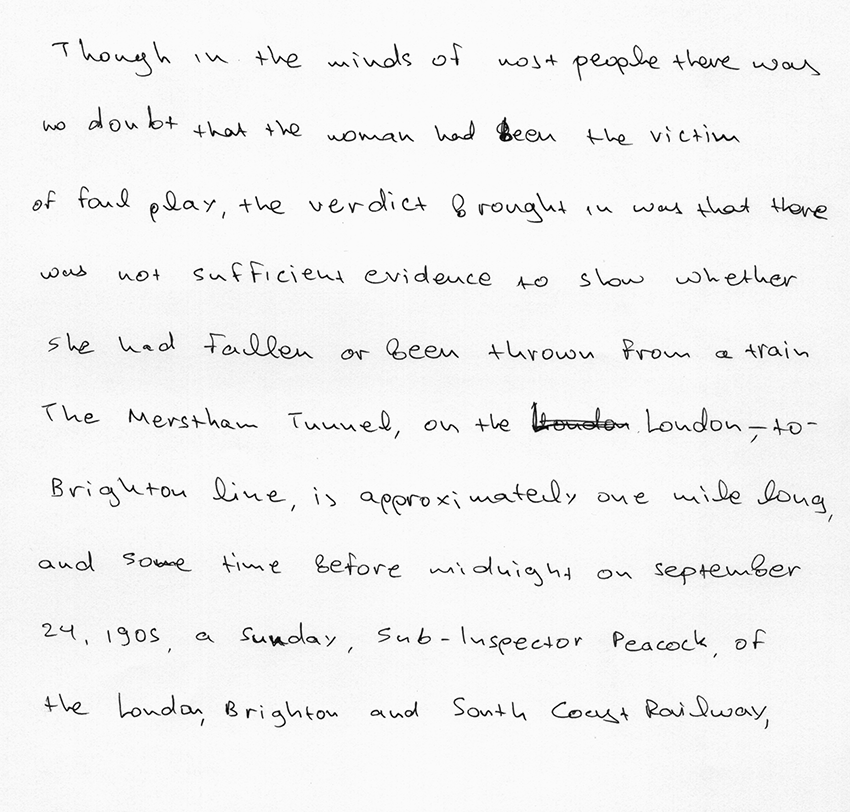 Though in the minds of most people there was
no doubt that the woman had been the victim
of foul play, the verdict brought in was that there
was not sufficient evidence to show whether
she had fallen or been thrown from a train
The Merstham Tunnel, on the London London-,to-
Brighton line, is approximately one mile long,
and some time before midnight on september
24, 1905, a Sunday, Sub-Inspector Peacock, of
the London, Brighton and South Coast Railway,